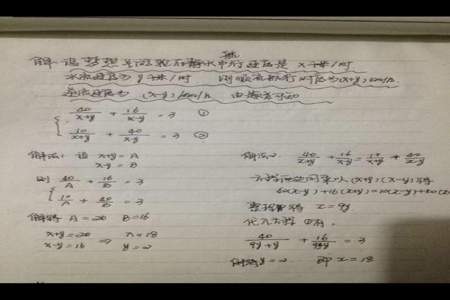 解：设梦想号游艇在静水中的速度是 x 千米/时
水流速度为 y 千米/时 则顺流航行时 为(x+y)km/h
逆流速度为 (x-y)km/h
40/x+y + 16/x-y = 3 ①
/x+y + 40/x-y = 3 ②
解法一 设 x+y=A
x-y=B
则 40/A + 16/B = 3
/A + 40/B = 3
解得 A=20 B=16
x+y=20 ⇒ x=18
x-y=16 y=2
解法二 40/x+y + 16/x-y = /x+y + 40/x-y
方程两边同乘以 (x+y)(x-y)得
40(x-y)+16(x+y)=
整理得 x=9y
代入方程 ①
40/9y+y + 16/ = 3
解得 y=2 即 x=18